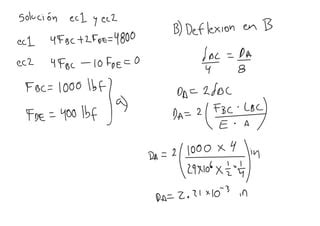 Solución ec1 y ec2
ec1 4F_BC+2F_DE=4800
ec2 4F_BC -10F_DE=0
F_BC = 1000 lbf
F_DE = 400 lbf
a)
B) Deflexion en B
δBC/4 = DA/8
DA = 2δBC
DA = 2(F_BC · L_BC / E · A)
DA = 2(1000 × 4 / 29×10⁶ × 1/2 × 1/4) in
DA = 2.21×10⁻³ in